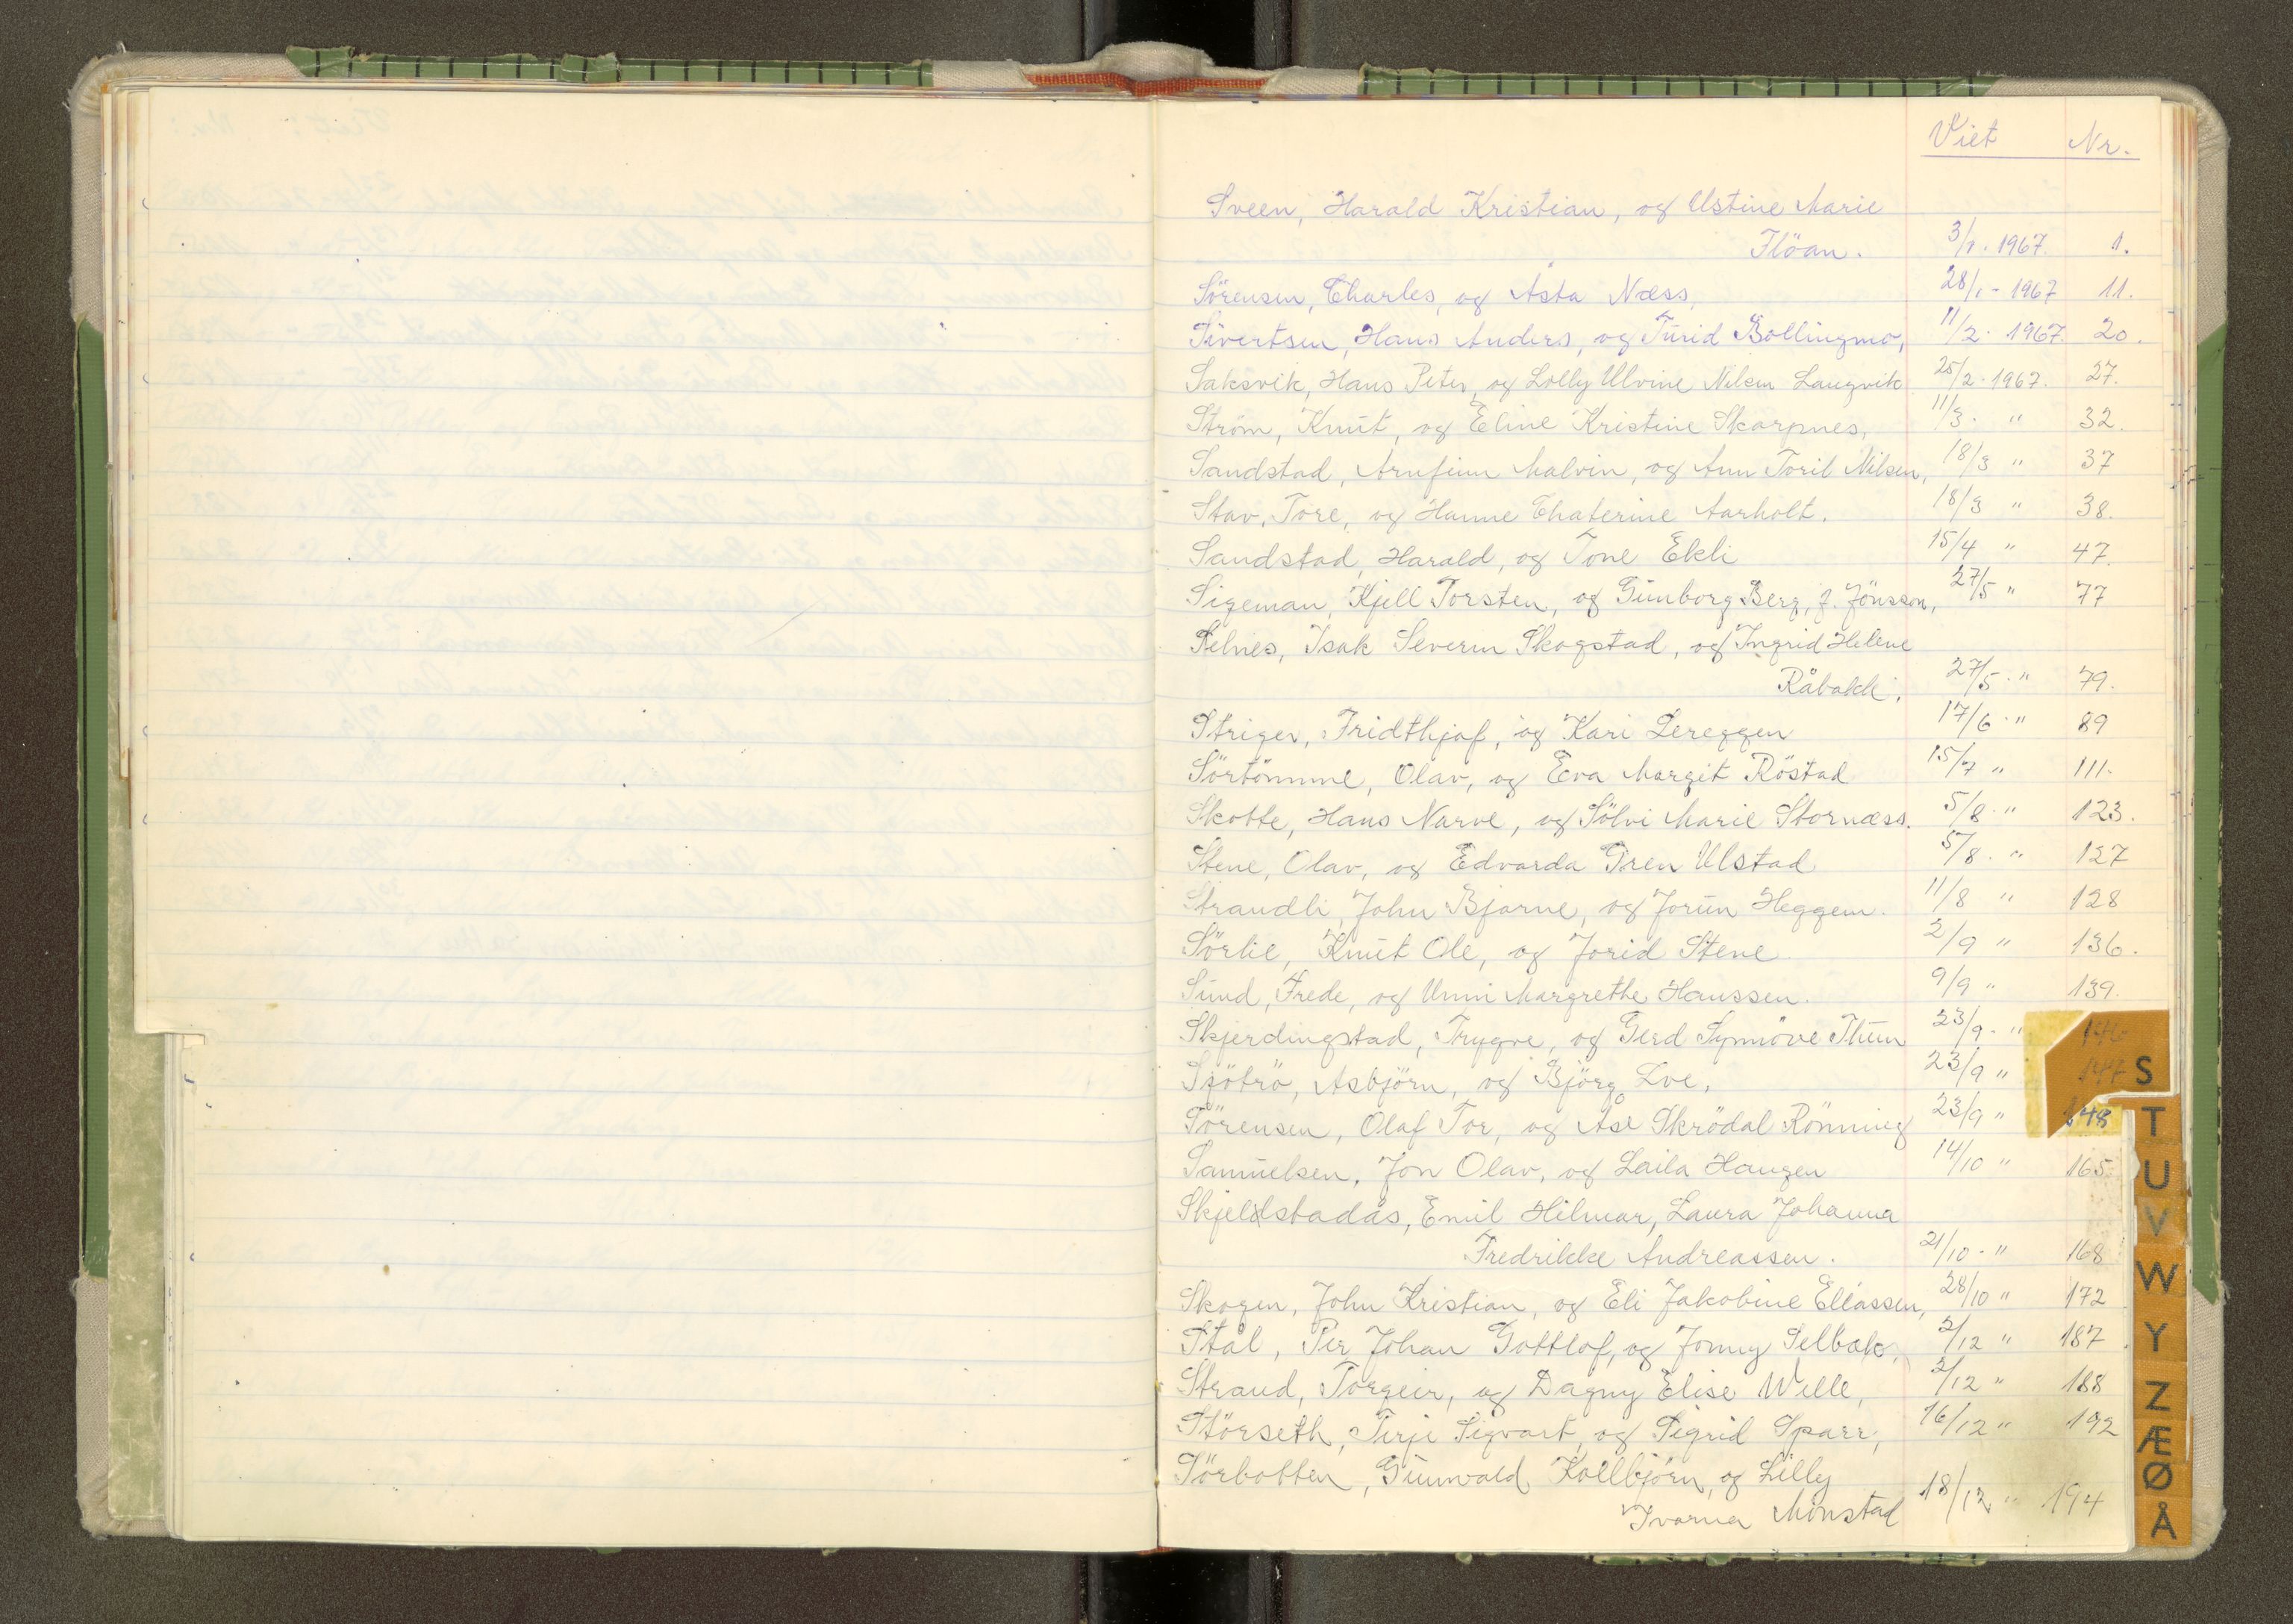 Viet Nr.
Sveen, Harald Kristian, og Ustine Marie
Flöan. 3/1. 1967. 1.
Sörensen, Charles, og Asta Næss, 28/1 - 1967 11.
Sivertsen, Hans Anders, og Turid Bollingmo, 11/2. 1967. 20.
Saksvik, Hans Peter, og Lolly Ulvine Nilsen Langvik 25/2. 1967. 27.
Ström, Knut, og Eline Kristine Skarpnes, 11/3. " 32.
Sandstad, Arnfinn Malvin, og Ann Toril Nilsen, 18/3 " 37
Stav, Tore, og Hanne Chaterine Aarholt. 18/3 " 38.
Sandstad, Harald, og Tone Ekli 15/4 " 47.
Sigeman, Kjell Torsten, og Gunborg Berg, f. Jönsson, 27/5 " 77
Selnes, Isak Severin Skogstad, og Ingrid Helene
Råbakk. 27/5. " 79.
Striger, Fridthjof, og Kari Lereggen 17/6. " 89
Sörtömme, Olav, og Eva Margit Röstad 15/7 " 111.
Skotte, Hans Narve, og Sölvi Marie Stornæss. 5/8. " 123.
Stene, Olav, og Edvarda Gren Ulstad 5/8. " 127
Strandli, John Bjarne, og Jorun Heggem. 11/8 " 128
Sörlie, Knut Ole, og Jorid Stene 2/9 " 136.
Sund, Frede, og Unni Margrethe Hanssen. 9/9 " 139.
Skjerdingstad, Trygve, og Gerd Synnöve Thun 23/9. " 146
Sjötrö, Asbjörn, og Björg Loe, 23/9 " 147 S
Sörensen, Olaf Tor, og Åse Skrödal Rönning 23/9 " 148 T
Samuelsen, Jon Olav, og Laila Haugen 14/10 " 165 U
Skjelstadås, Emil Hilmar, Laura Johanna V
Fredrikke Andreassen. 21/10 - " 168
W
Skogen, John Kristian, og Eli Jakobine Eliassen, 28/10 " 172
Stål, Per Johan Gottlof, og Jonny Selbak, 2/12 " 187. Y
Strand, Torgeir, og Dagny Elise Welle, 2/12 " 188 Z
Störseth, Terje Sigvart, og Sigrid Sparr, 16/12 " 192 Æ
Sörbotten, Gunvald Kolbjörn, og Lilly Ø
Ivarna Monstad 18/12 " 194 Å